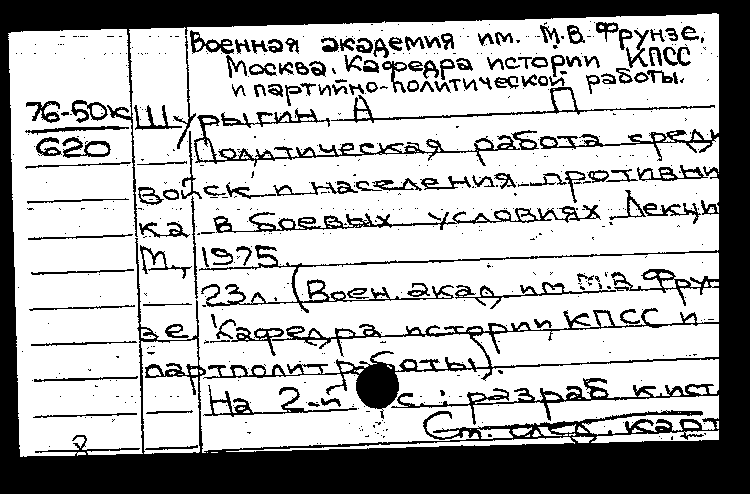 Военная академия им. М.В. Фрунзе,
Москва. Кафедра истории КПСС
и партийно-политической работы.
76-50к Шурыгин, А П
620 Политическая работа среди
войск и населения противни
ка в боевых условиях. Лекци
М., 1975.
23л. (Воен. акад им М.В. Фрун
зе. Кафедра истории КПСС и
партполитработы).
На 2-й с.: разраб к.ист.
См. след. карт
8